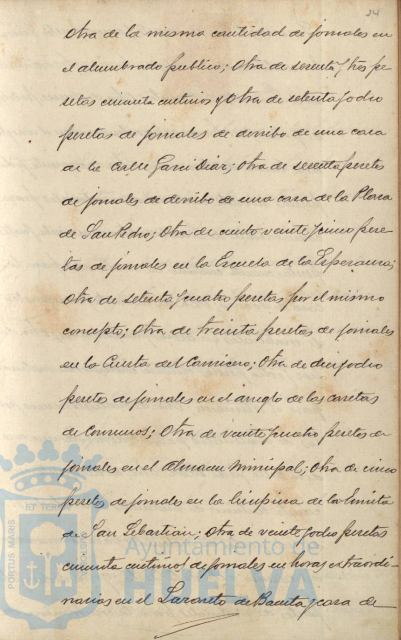 24
otra de la misma cantidad de jornales en
el alumbrado publico; Otra de sesenta y tres pe-
setas cincuenta centimos y Otra de setenta y ocho
pesetas de jornales de derribo de una casa
de la Calle Garci Diaz; Otra de sesenta pesetas
de jornales de derribo de una casa de la Plaza
de San Pedro; Otra de ciento veinte y cinco pese-
tas de jornales en la Escuela de la Esperanza;
Otra de setenta y cuatro pesetas por el mismo
concepto; Otra de treinta pesetas de jornales
en la Cuesta del Carnicero; Otra de diez y ocho
pesetas de jornales en el arreglo de las casetas
de Consumos; Otra de veinte y cuatro pesetas de
jornales en el Almacen Municipal; Otra de cinco
pesetas de jornales en la limpieza de la Ermita
de San Sebastian; Otra de veinte y ocho pesetas
cincuenta centimos de jornales en horas extraordi-
narias en el Lazareto de y casa de
PORTUS MARIS ET TERR
Ayuntamiento de
HUELVA